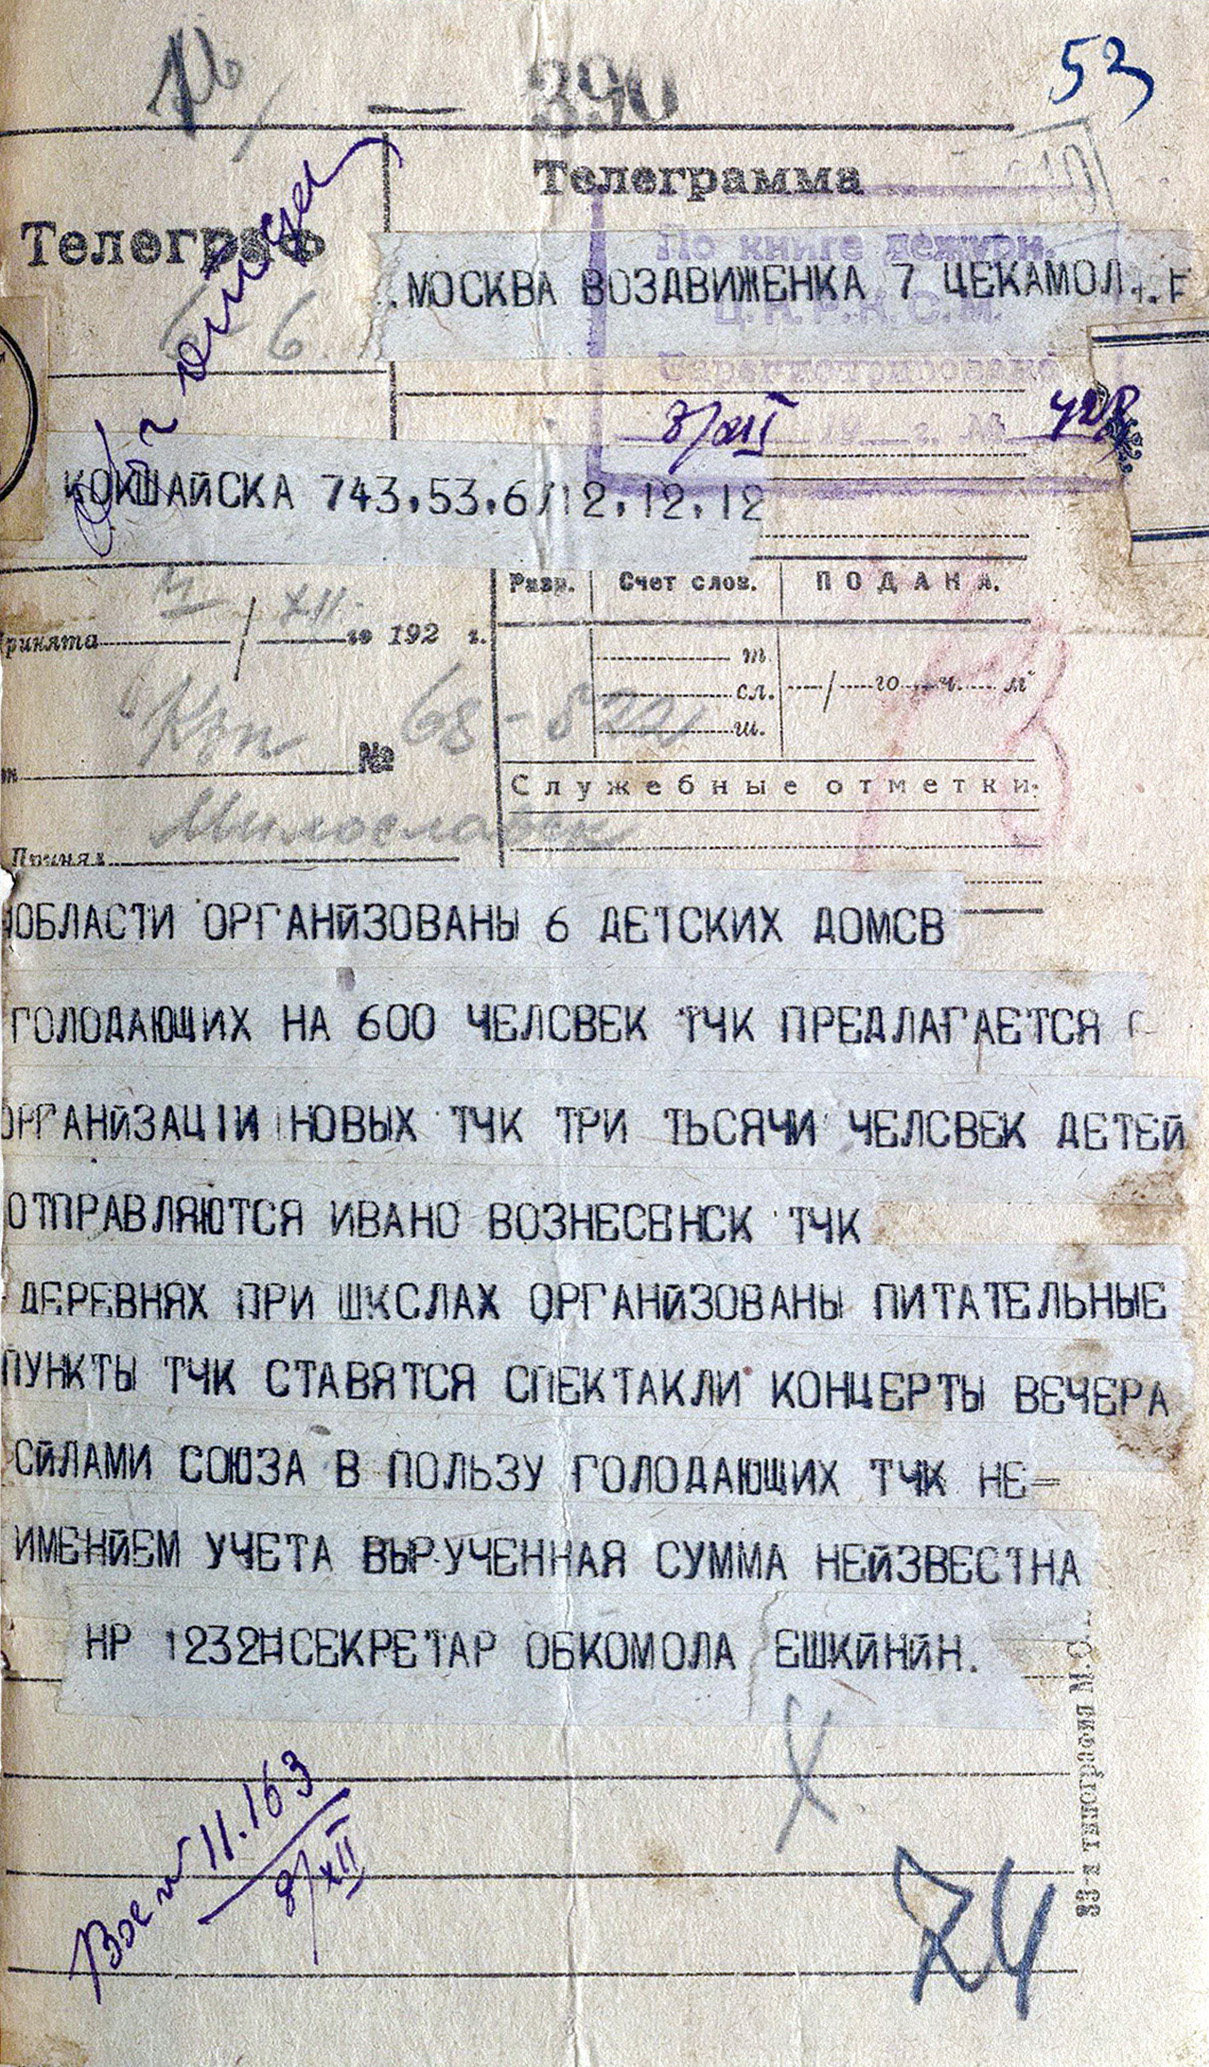 390
53
Телеграмма
Телеграф
По книге дежурн.
.МОСКВА ВОЗДВИЖЕНКА 7 ЦЕКАМОЛ
Ц.К.Р.К.С.М.
6.
Зарегистрировано
8/XII 19 г. №
КОКШАЙСКА 743.53.6/12.12.12
Разр. Счет слов. ПОДАНА.
XII
Принята го 192 г.
т.
сл. го ч. м
ш.
68-522
№
Служебные отметки.
Милославск
Принял
ОБЛАСТИ ОРГАНЙЗОВАНЫ 6 ДЕТСКИХ ДОМСВ
ГОЛОДАЮЩИХ НА 600 ЧЕЛСВЕК ТЧК ПРЕДЛАГАЕТСЯ
ОРГАНЙЗАЦIИ НОВЫХ ТЧК ТРИ ТЬСЯЧИ ЧЕЛСВЕК ДЕТЕЙ
ОТПРАВЛЯЮТСЯ ИВАНО ВОЗНЕСЕНСК ТЧК
ДЕРЕВНЯХ ПРИ ШКСЛАХ ОРГАНЙЗОВАНЫ ПИТАТЕЛЬНЫЕ
ПУНКТЫ ТЧК СТАВЯТСЯ СПЕКТАКЛИ КОНЦЕРТЫ ВЕЧЕРА
СЙЛАМИ СОЮЗА В ПОЛЬЗУ ГОЛОДАЮЩИХ ТЧК НЕ=
ИМЕНЙЕМ УЧЕТА ВЫРУЧЕННАЯ СУММА НЕЙЗВЕСТНА
НР 1232Н СЕКРЕТАР ОБКОМОЛА ЕШКЙНЙН.
11.163
8/XII
74
33-я типография М.С.